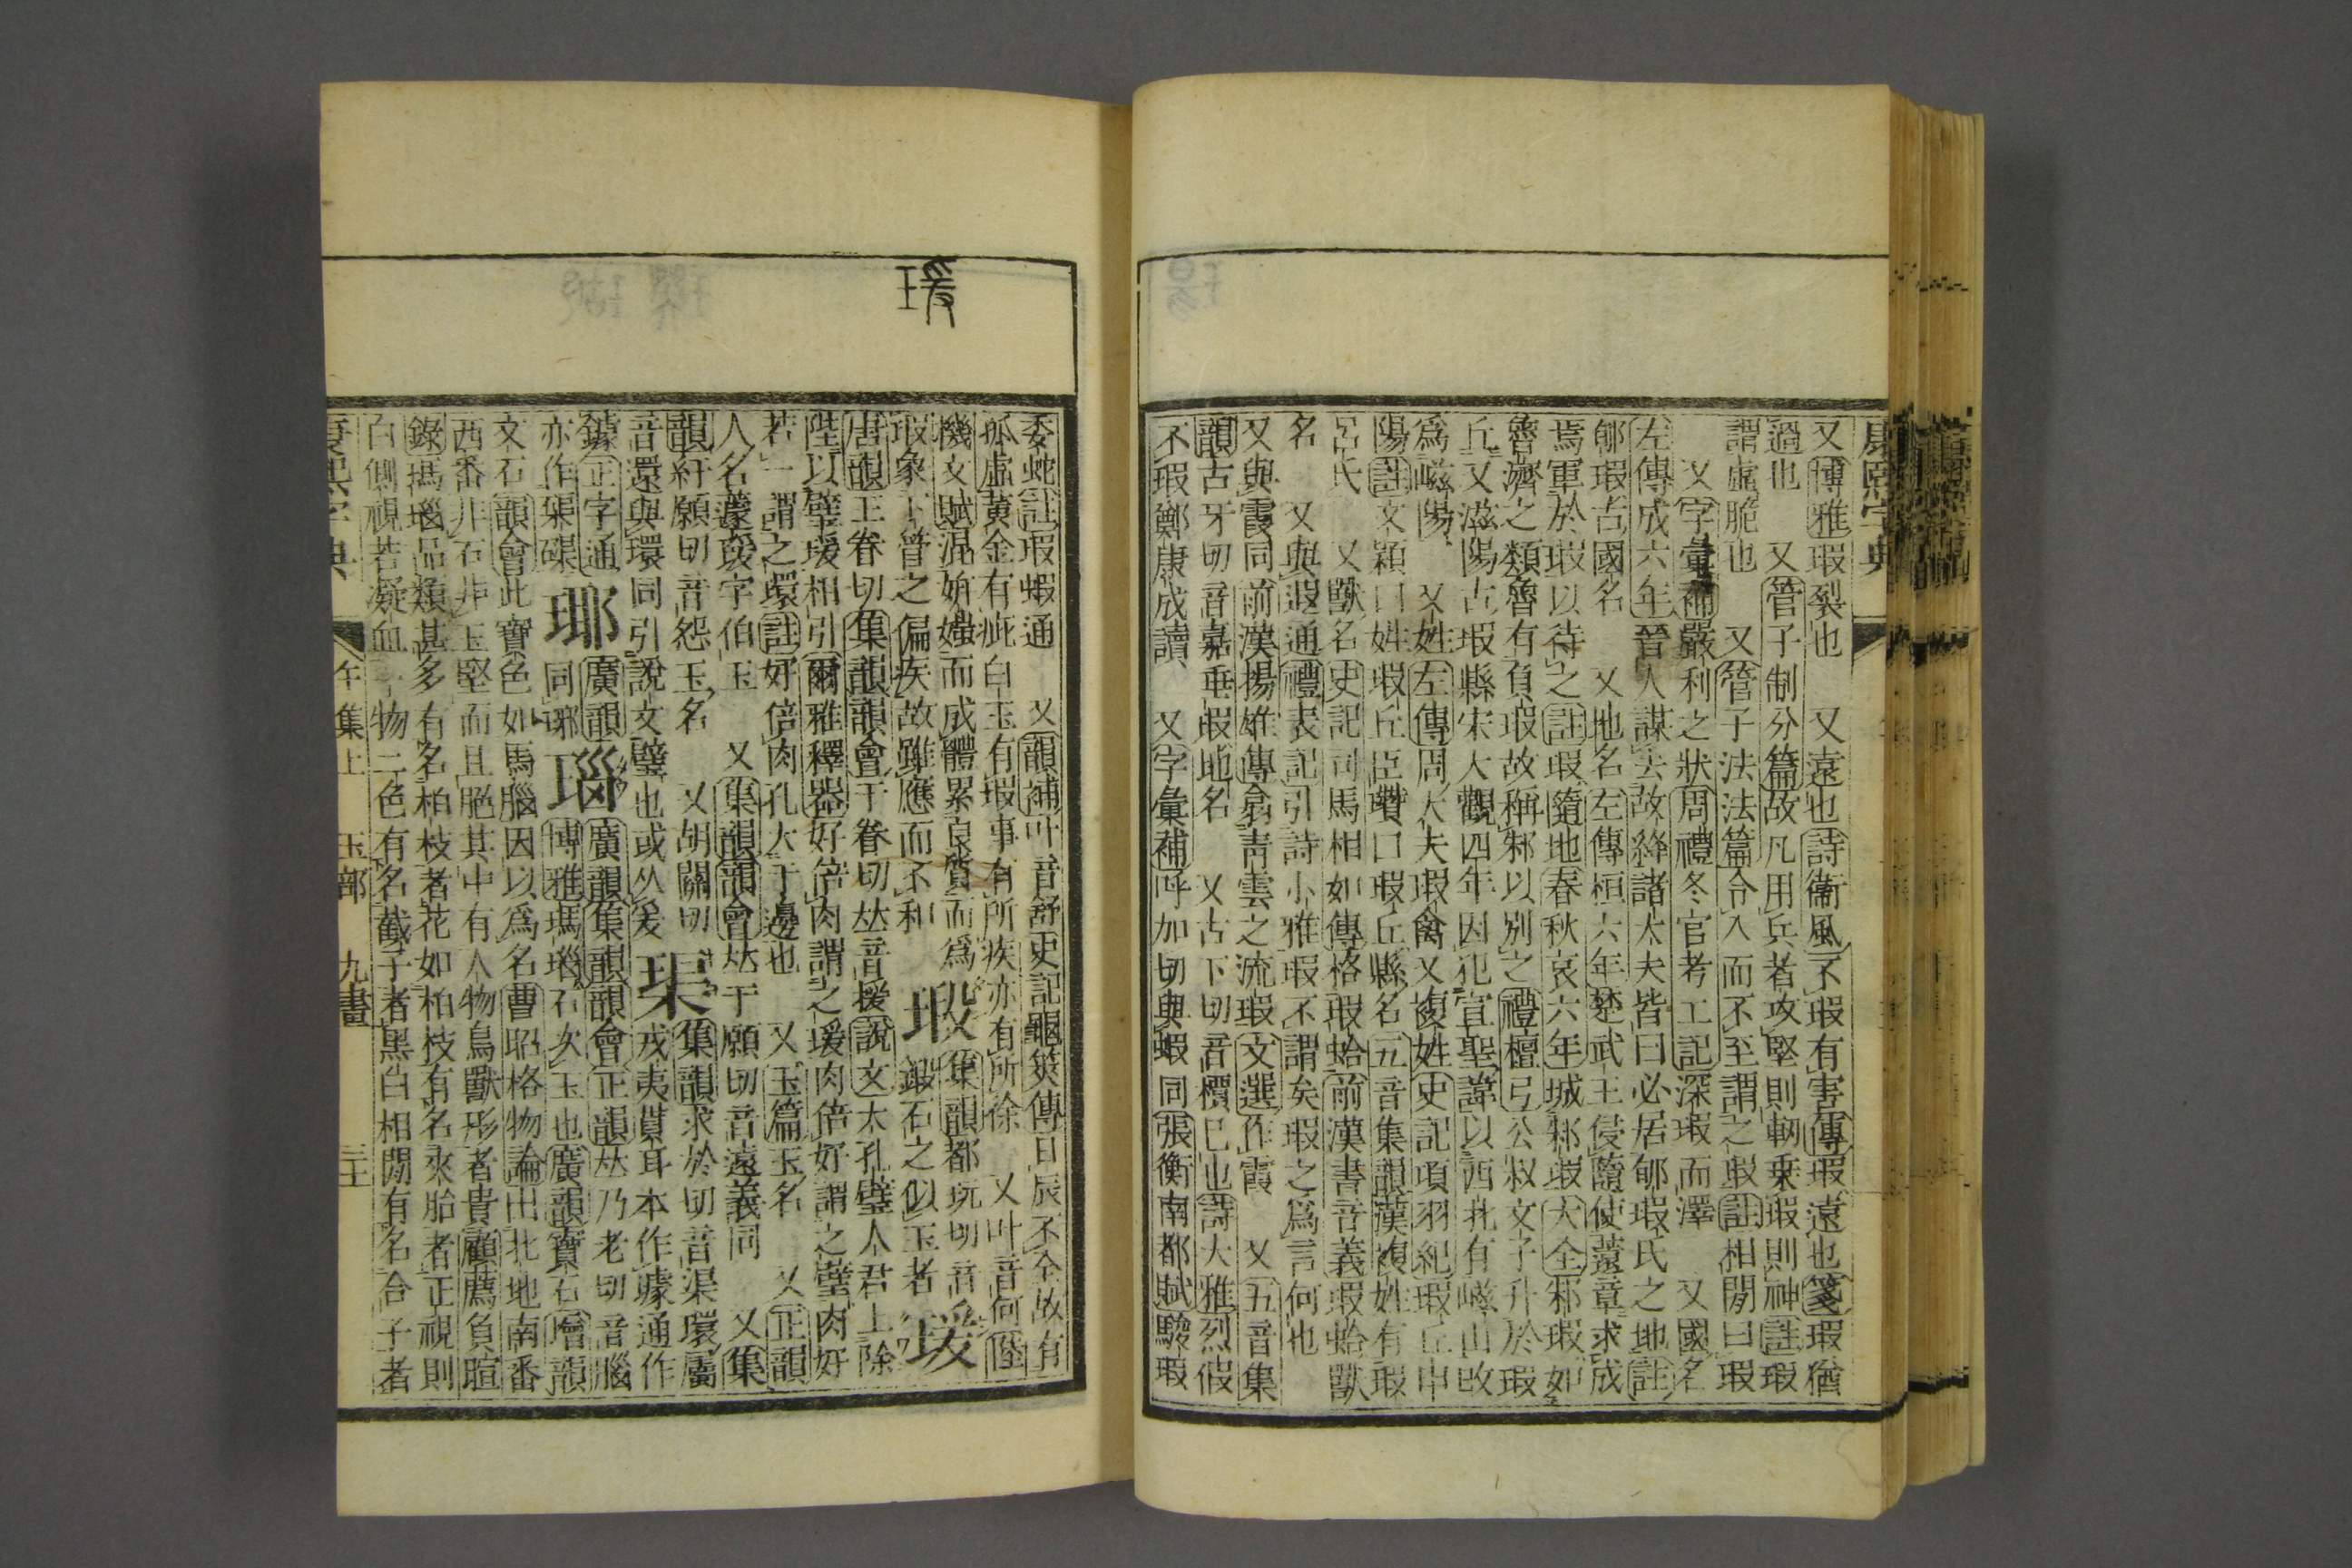 康熙字典
又博雅瑕裂也 又遠也詩衞風不瑕有害傳瑕遠也箋瑕猶
過也 又管子制分篇故凡用兵者攻堅則軔乗瑕則神註瑕
謂虛脆也 又管子法法篇令入而不至謂之瑕註相閒曰瑕
又字彙補嚴利之狀周禮冬官考工記深瑕而澤 又國名
左傳成六年晉人謀去故絳諸大夫皆曰必居郇瑕氏之地註
郇瑕古國名 又地名左傳桓六年楚武王侵隨使薳章求成
焉軍於瑕以待之註瑕隨地春秋哀六年城邾瑕大全邾瑕如
魯濟之類魯有負瑕故稱邾以別之禮檀弓公叔文子升於瑕
丘又滋陽古瑕縣宋大觀四年因犯宣聖諱以西北有嵫山改
爲嵫陽 又姓左傳周大夫瑕禽又複姓史記項羽紀瑕丘申
陽註文穎曰姓瑕丘臣瓚曰瑕丘縣名五音集韻漢複姓有瑕
呂氏 又獸名史記司馬相如傳格瑕蛤前漢書音義蝦蛤獸
名 又與遐通禮表記引詩小雅瑕不謂矣瑕之爲言何也
又與霞同前漢揚雄傳翕靑雲之流瑕文選作霞 又五音集
韻古牙切音嘉垂瑕地名 又古下切音檟巳也詩大雅烈假
不瑕鄭康成讀 又字彙補呼加切與蝦同張衡南都賦駿瑕
瑗
委蛇註瑕蝦通 又韻補叶音舒史記龜筴傳日辰不全故有
孤虛黃金有疵白玉有瑕事有所疾亦有所徐 又叶音何陸
機文賦混姸媸而成體累良質而爲瑕象下管之偏疾故雖應而不和 瑖集韻都玩切音
鍛石之似玉者 瑗
唐韻王眷切集韻韻會于眷切𠀤音援說文大孔璧人君上除
陛以璧瑗相引爾雅釋器好倍肉謂之瑗肉倍好謂之璧肉好
若一謂之環註好倍肉孔大于邊也 又玉篇玉名 又正韻
人名蘧瑗字伯玉 又集韻韻會𠀤于願切音遠義同 又集
韻紆願切音怨玉名 又胡關切
音還與環同引說文璧也或从爰 璖集韻求於切音渠環屬
戎夷貫耳本作璩通作
鐻正字通
亦作琹磲 瑘廣韻
同琊 瑙廣韻集韻韻會正韻𠀤乃老切音腦
博雅瑪瑙石次玉也廣韻寶石增韻
文石韻會此寶色如馬腦因以爲名曹昭格物論出北地南番
西番非石非玉堅而且脃其中有人物鳥獸形者貴顧薦負暄
錄瑪瑙品類甚多有名柏枝者花如柏枝有名夾胎者正視則
白側視若凝血一物二色有名截子者黑白相閒有名合子者
康熙字典 午集上 玉部 九畫 三十